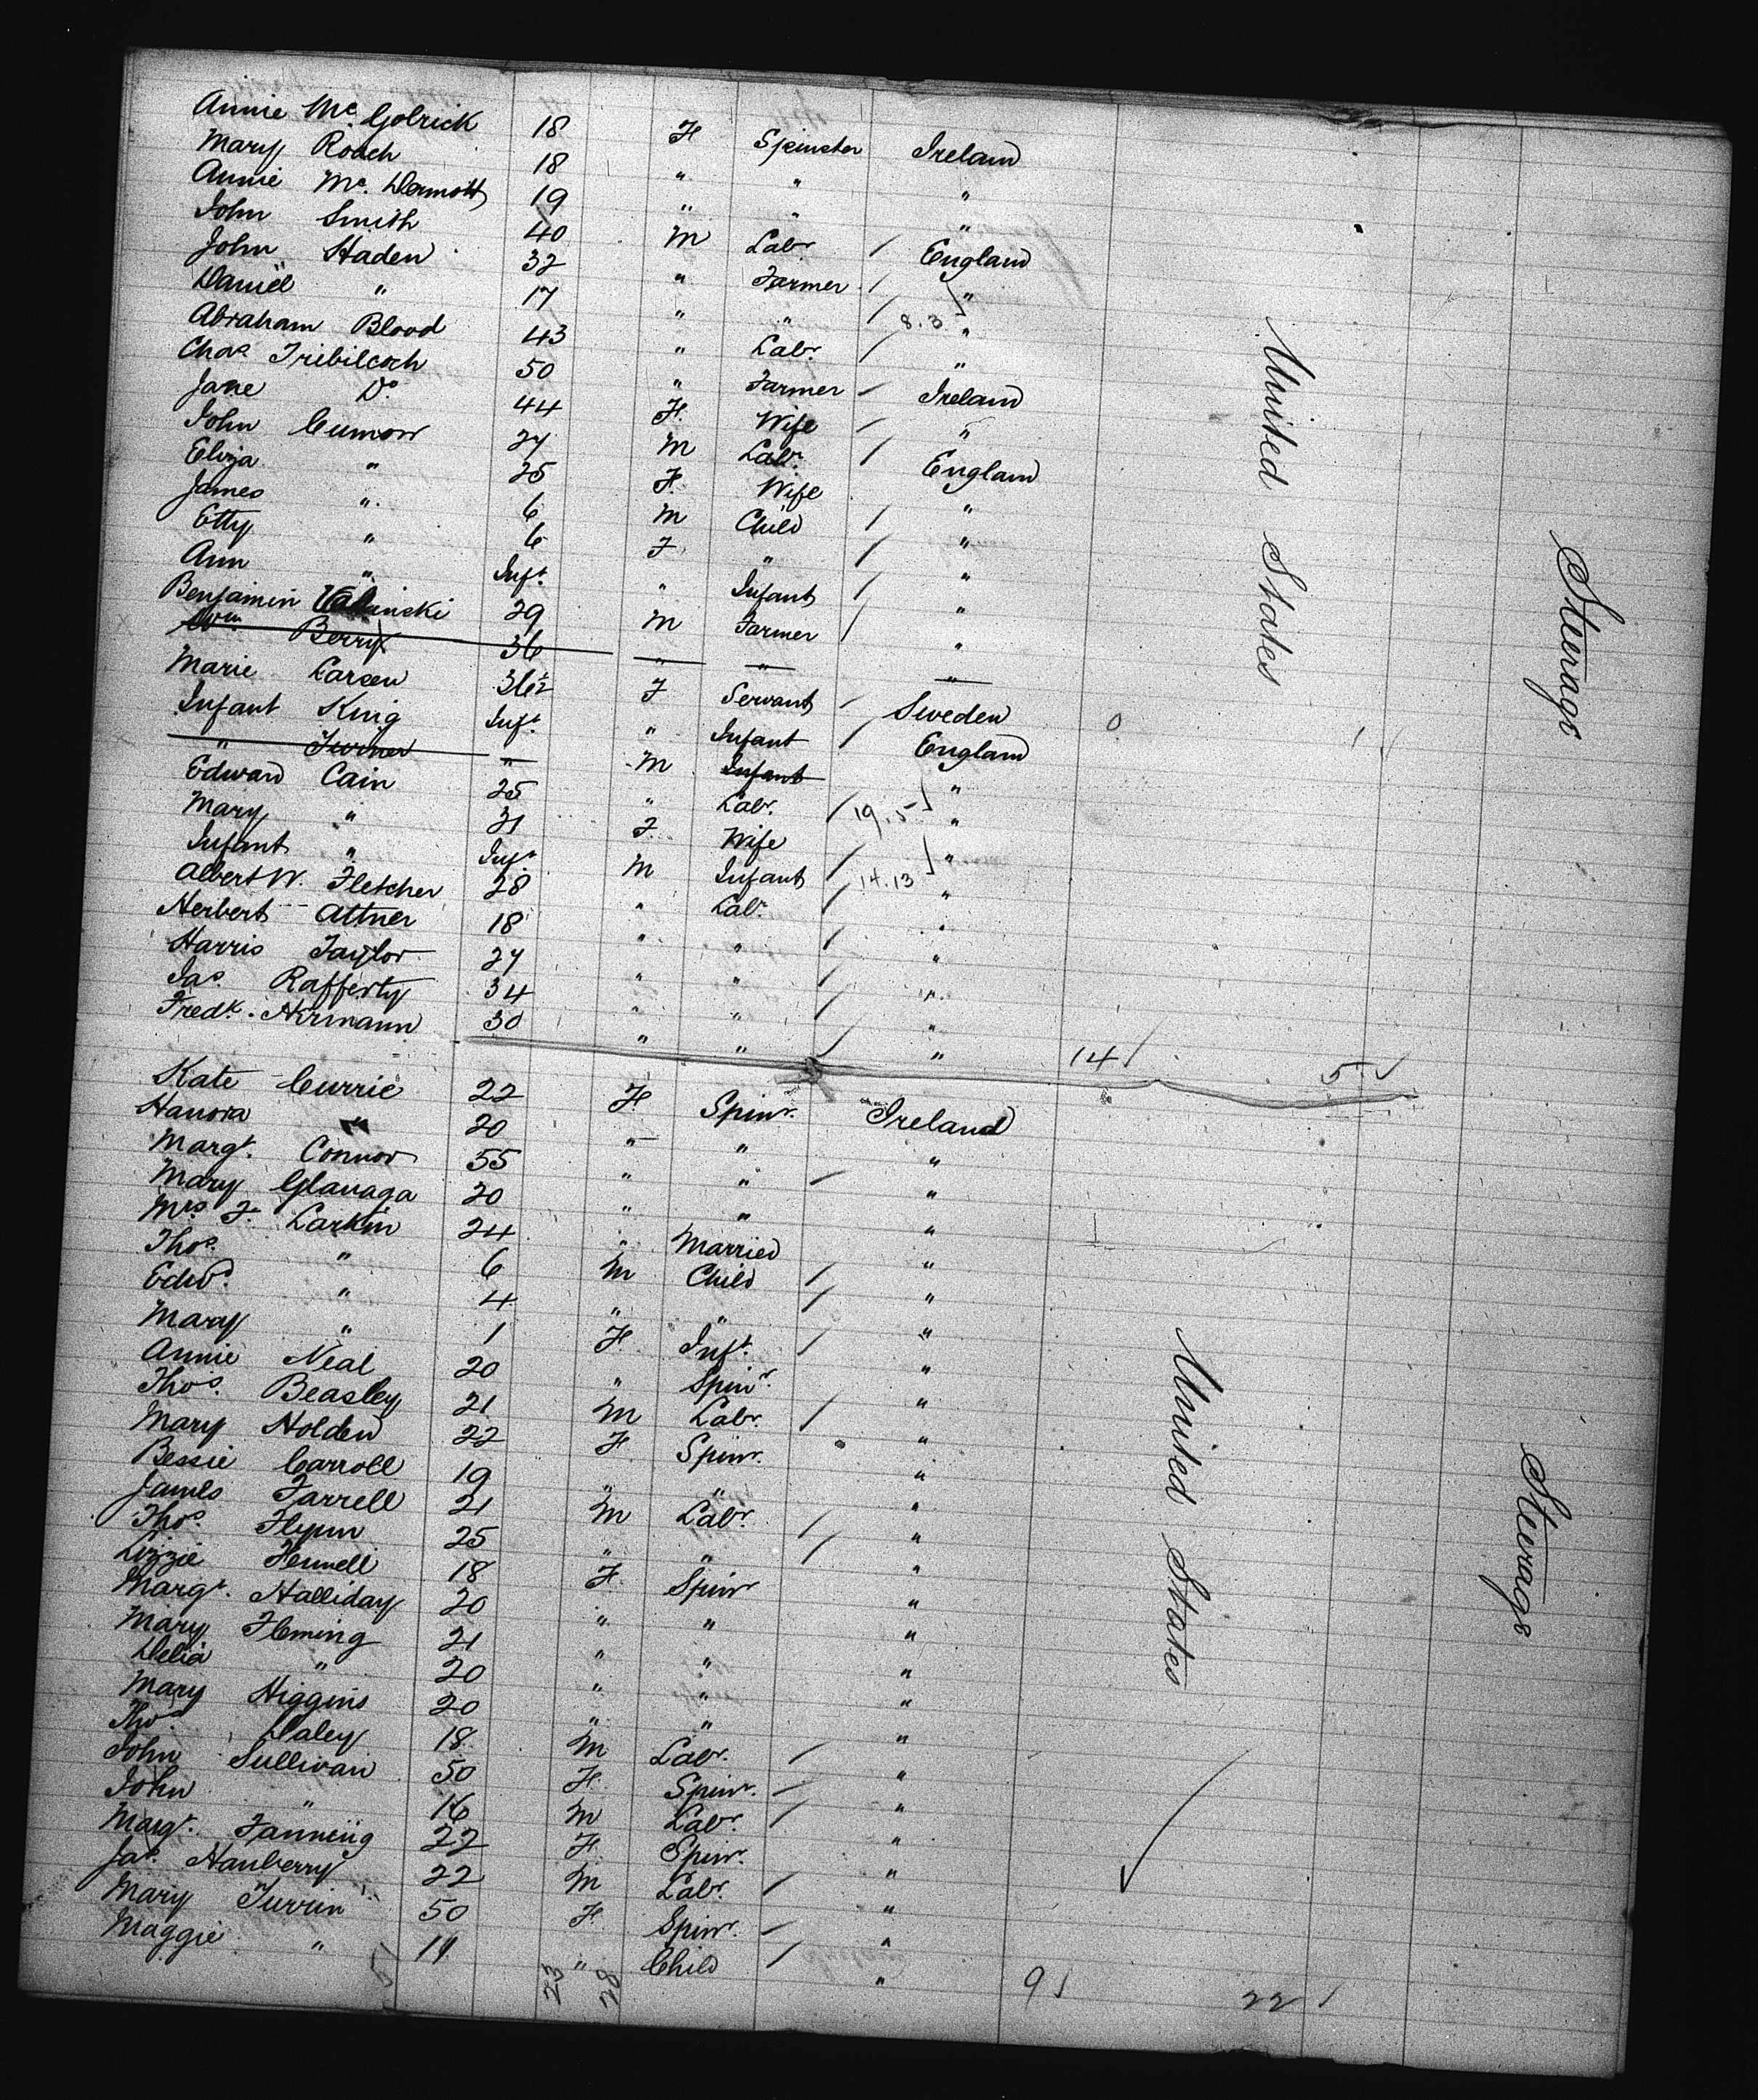 Annie McGolrick 18 F Spinster Ireland
Mary Roach 18 " " "
Annie Mc.Dermott 19 " " "
John Smith 40 M Labr. / England
John Staden 32 " Farmer / "
Daniel " 17 " " / 8.3 "
Abraham Blood 43 " Labr. / "
Chas. Tribilcoch 50 " Farmer / Ireland
Jane Do. 44 F. Wife / "
John 27 M Labr. / England
Eliza " 25 F. Wife "
James " 6 M Child / "
Etty " 6 F " / "
Ann " Inft. " Infant / "
Benjamin 29 M Farmer / "
Wm. Berry 36 " " "
Marie Larsen 36½ F Servant / Sweden 0 1 ✓
Infant King Inft. " Infant / England
" Turner " M Infant "
Edward Cain 25 " Labr. / 19.5 "
Mary " 21 F. Wife / "
Infant " Inft. M Infant / 14.13 "
Albert W. Fletcher 28 " Labr. / "
Herbert Attner 18 " " / "
Harris Taylor 27 " " / "
Jas. Rafferty 34 " " / "
Fredk. Hirmann 30 " " / " 14 / 5 ✓
Kate Currie 22 F. Spinr. Ireland
Hanora " 20 " " "
Margt. Connor 55 " " / "
Mary Glavaga 20 " " "
Mrs F. Larkin 24 " Married "
Thos. " 6 M Child / "
Edwd. " 4 " " / "
Mary " 1 F. Inft. / "
Annie Neal 20 " Spinr. "
Thos. Beasley 21 M Labr. / "
Mary Holden 22 F. Spinr. "
Bessie Carroll 19 " " "
James Farrell 21 M Labr. / "
Thos. Flynn 25 " " / "
Lizzie Fennell 18 F. Spinr "
Margt. Halliday 20 " " "
Mary Fleming 21 " " "
Delia " 20 " " "
Mary Higgins 20 " " "
Thos. Daley 18 M Labr. / "
John Sullivan 50 F. Spinr. / "
John " 16 M Labr. / "
Margt. Fanning 22 F. Spinr. "
Jas. Hanberry 22 M Labr. / "
Mary 50 F. Spinr. / "
Maggie " 11 " Child / "
23 28 9 / 22 /
United States
Steerage
United States
Steerage